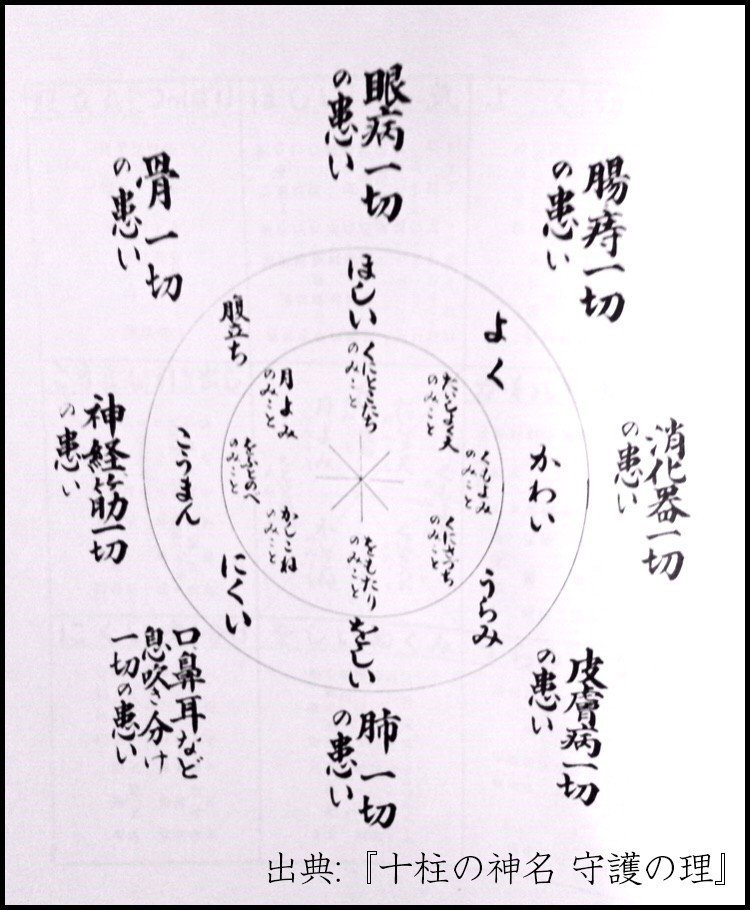 眼病一切
の患い
腸痔一切
の患い
消化器一切
の患い
皮膚病一切
の患い
肺一切
の患い
口鼻耳など
息吹き分け
一切の患い
神経筋一切
の患い
骨一切
の患い
ほしい
よく
かわい
うらみ
をしい
にくい
こうまん
腹立ち
くにとこたち
のみこと
たいしよく天
のみこと
くもよみ
のみこと
くにさづち
のみこと
をもたり
のみこと
かしこね
のみこと
をふとのべ
のみこと
月よみ
のみこと
出典:『十柱の神名 守護の理』